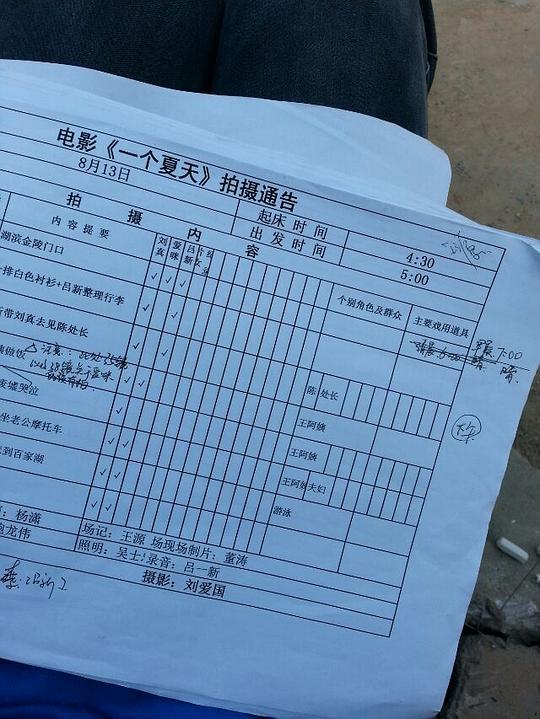 电影《一个夏天》拍摄通告
8月13日
起床时间 4:30
出发时间 5:00
拍摄内容
内容提要 刘真 爱咪 吕新 个别角色及群众 主要戏用道具
湖滨金陵门口
排白色衬衫+吕新整理行李
7:00
带刘真去见陈处长 陈处长
做饭 注意: 王阿姨
废墟哭泣 王阿姨
坐老公摩托车 王阿姨夫妇
到百家湖 游泳
杨潇 场记: 王源 场现场制片: 董涛
龙伟 照明: 吴士 录音: 吕一新
摄影: 刘爱国